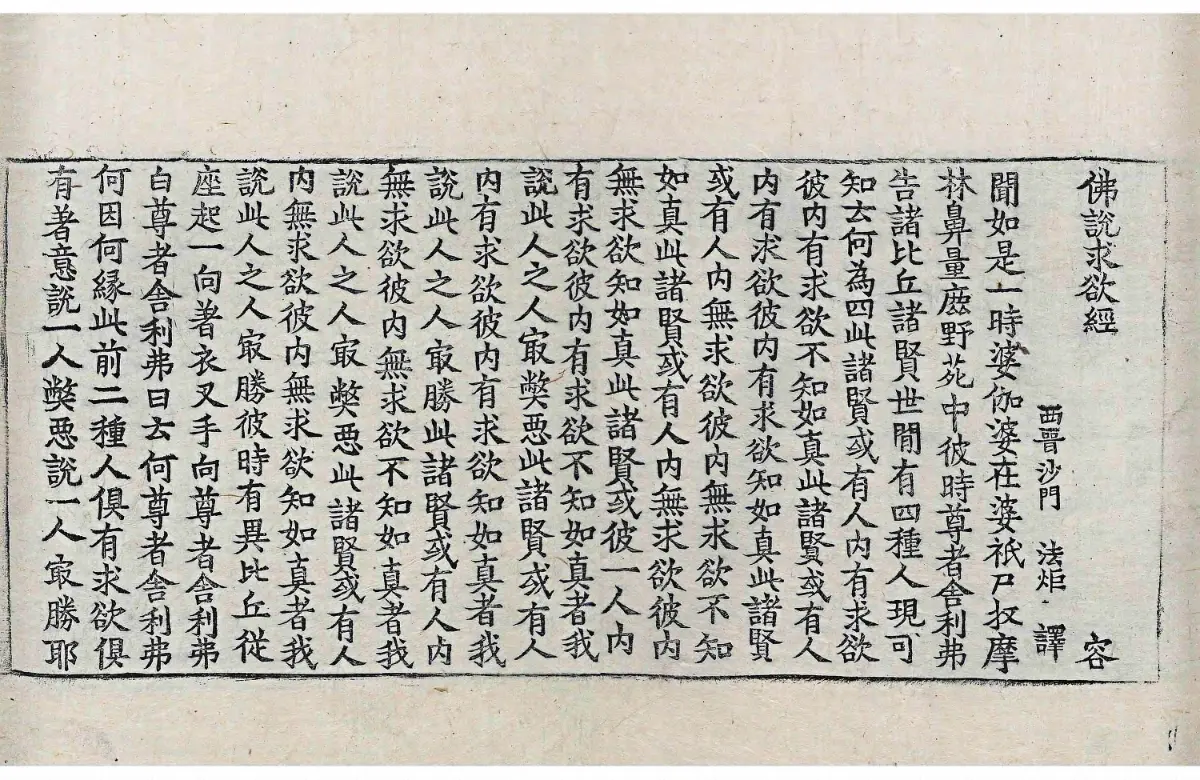 佛說求欲經 容
西晉沙門 法炬 譯
聞如是一時婆伽婆在婆祇尸牧摩
林鼻量鹿野苑中彼時尊者舍利弗
告諸比丘諸賢世間有四種人現可
知云何為四此諸賢或有人內有求欲
彼內有求欲不知如真此諸賢或有人
內有求欲彼內有求欲知如真此諸賢
或有人內無求欲彼內無求欲不知
如真此諸賢或有人內無求欲彼內
無求欲知如真此諸賢或彼一人內
有求欲彼內有求欲不知如真者我
說此人之人㝡弊惡此諸賢或有人
內有求欲彼內有求欲知如真者我
說此人之人㝡勝此諸賢或有人內
無求欲彼內無求欲不知如真者我
說此人之人㝡弊惡此諸賢或有人
內無求欲彼內無求欲知如真者我
說此人之人㝡勝彼時有異比丘從
座起一向著衣叉手向尊者舍利弗
白尊者舍利弗曰云何尊者舍利弗
何因何緣此前二種人俱有求欲俱
有著意說一人弊惡說一人㝡勝耶